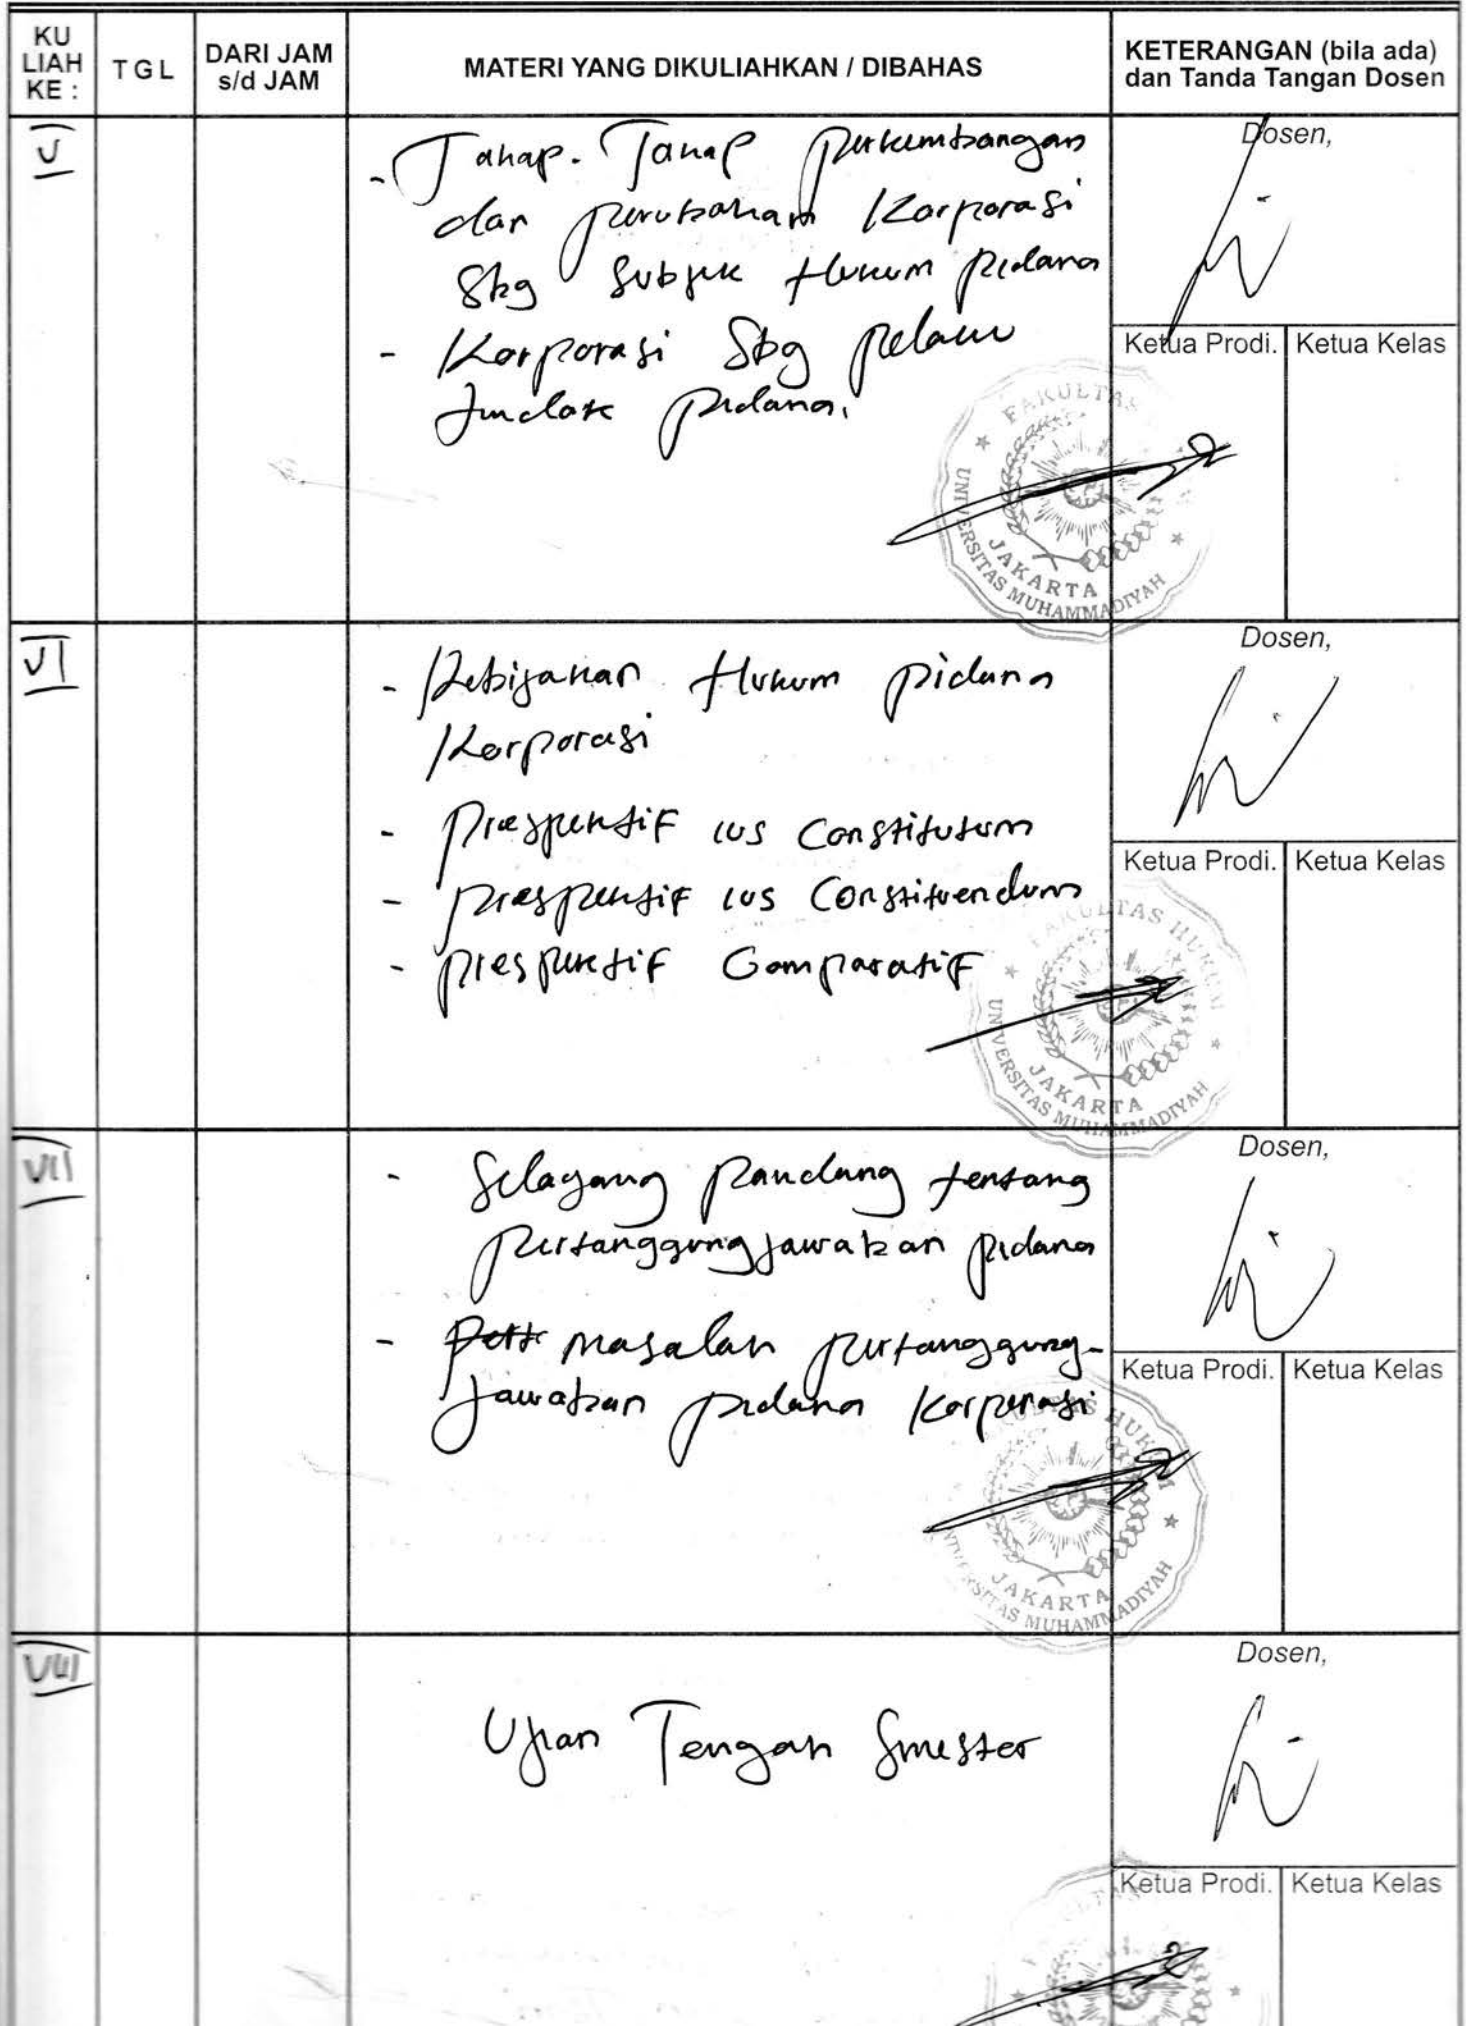 KU LIAH KE :
TGL
DARI JAM s/d JAM
MATERI YANG DIKULIAHKAN / DIBAHAS
KETERANGAN (bila ada)
dan Tanda Tangan Dosen
V
- Tahap. Tahap perkembangan
dan perubahan Korporasi
Sbg Subjek Hukum pidana
- Korporasi Sbg pelaku
tindak pidana.
Dosen,
Ketua Prodi.
Ketua Kelas
FAKULTAS
UNIVERSITAS MUHAMMADIYAH
JAKARTA
VI
- Kebijakan Hukum pidana
Korporasi
- prespektif ius Constitutum
- prespektif ius Constituendum
- prespektif Comparatif
Dosen,
Ketua Prodi.
Ketua Kelas
FAKULTAS HUKUM
UNIVERSITAS MUHAMMADIYAH
JAKARTA
VII
- Selayang pandang tentang
pertanggungjawaban pidana
- masalah pertanggung-
jawaban pidana Korporasi
Dosen,
Ketua Prodi.
Ketua Kelas
FAKULTAS HUKUM
UNIVERSITAS MUHAMMADIYAH
JAKARTA
VIII
Ujian Tengah Smester
Dosen,
Ketua Prodi.
Ketua Kelas